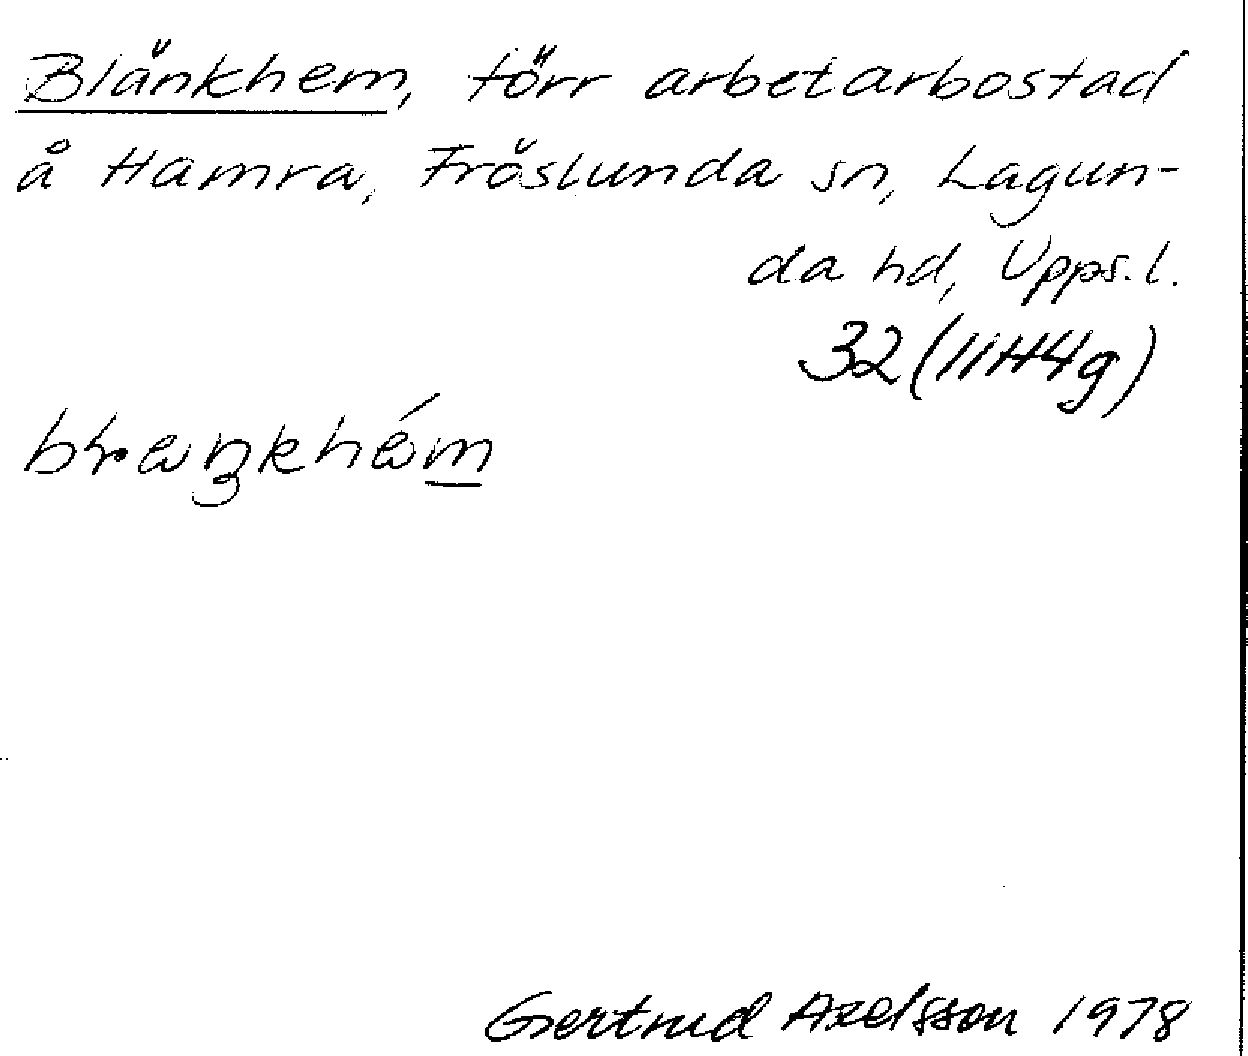 Blänkhem, förr arbetarbostad
å Hamra, Fröslunda sn, Lagun-
da hd, Upps. l.
32 (11H4g)
Gertrud Axelsson 1978